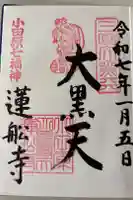 令和七年一月五日
大黒天
小田原七福神
蓮船寺